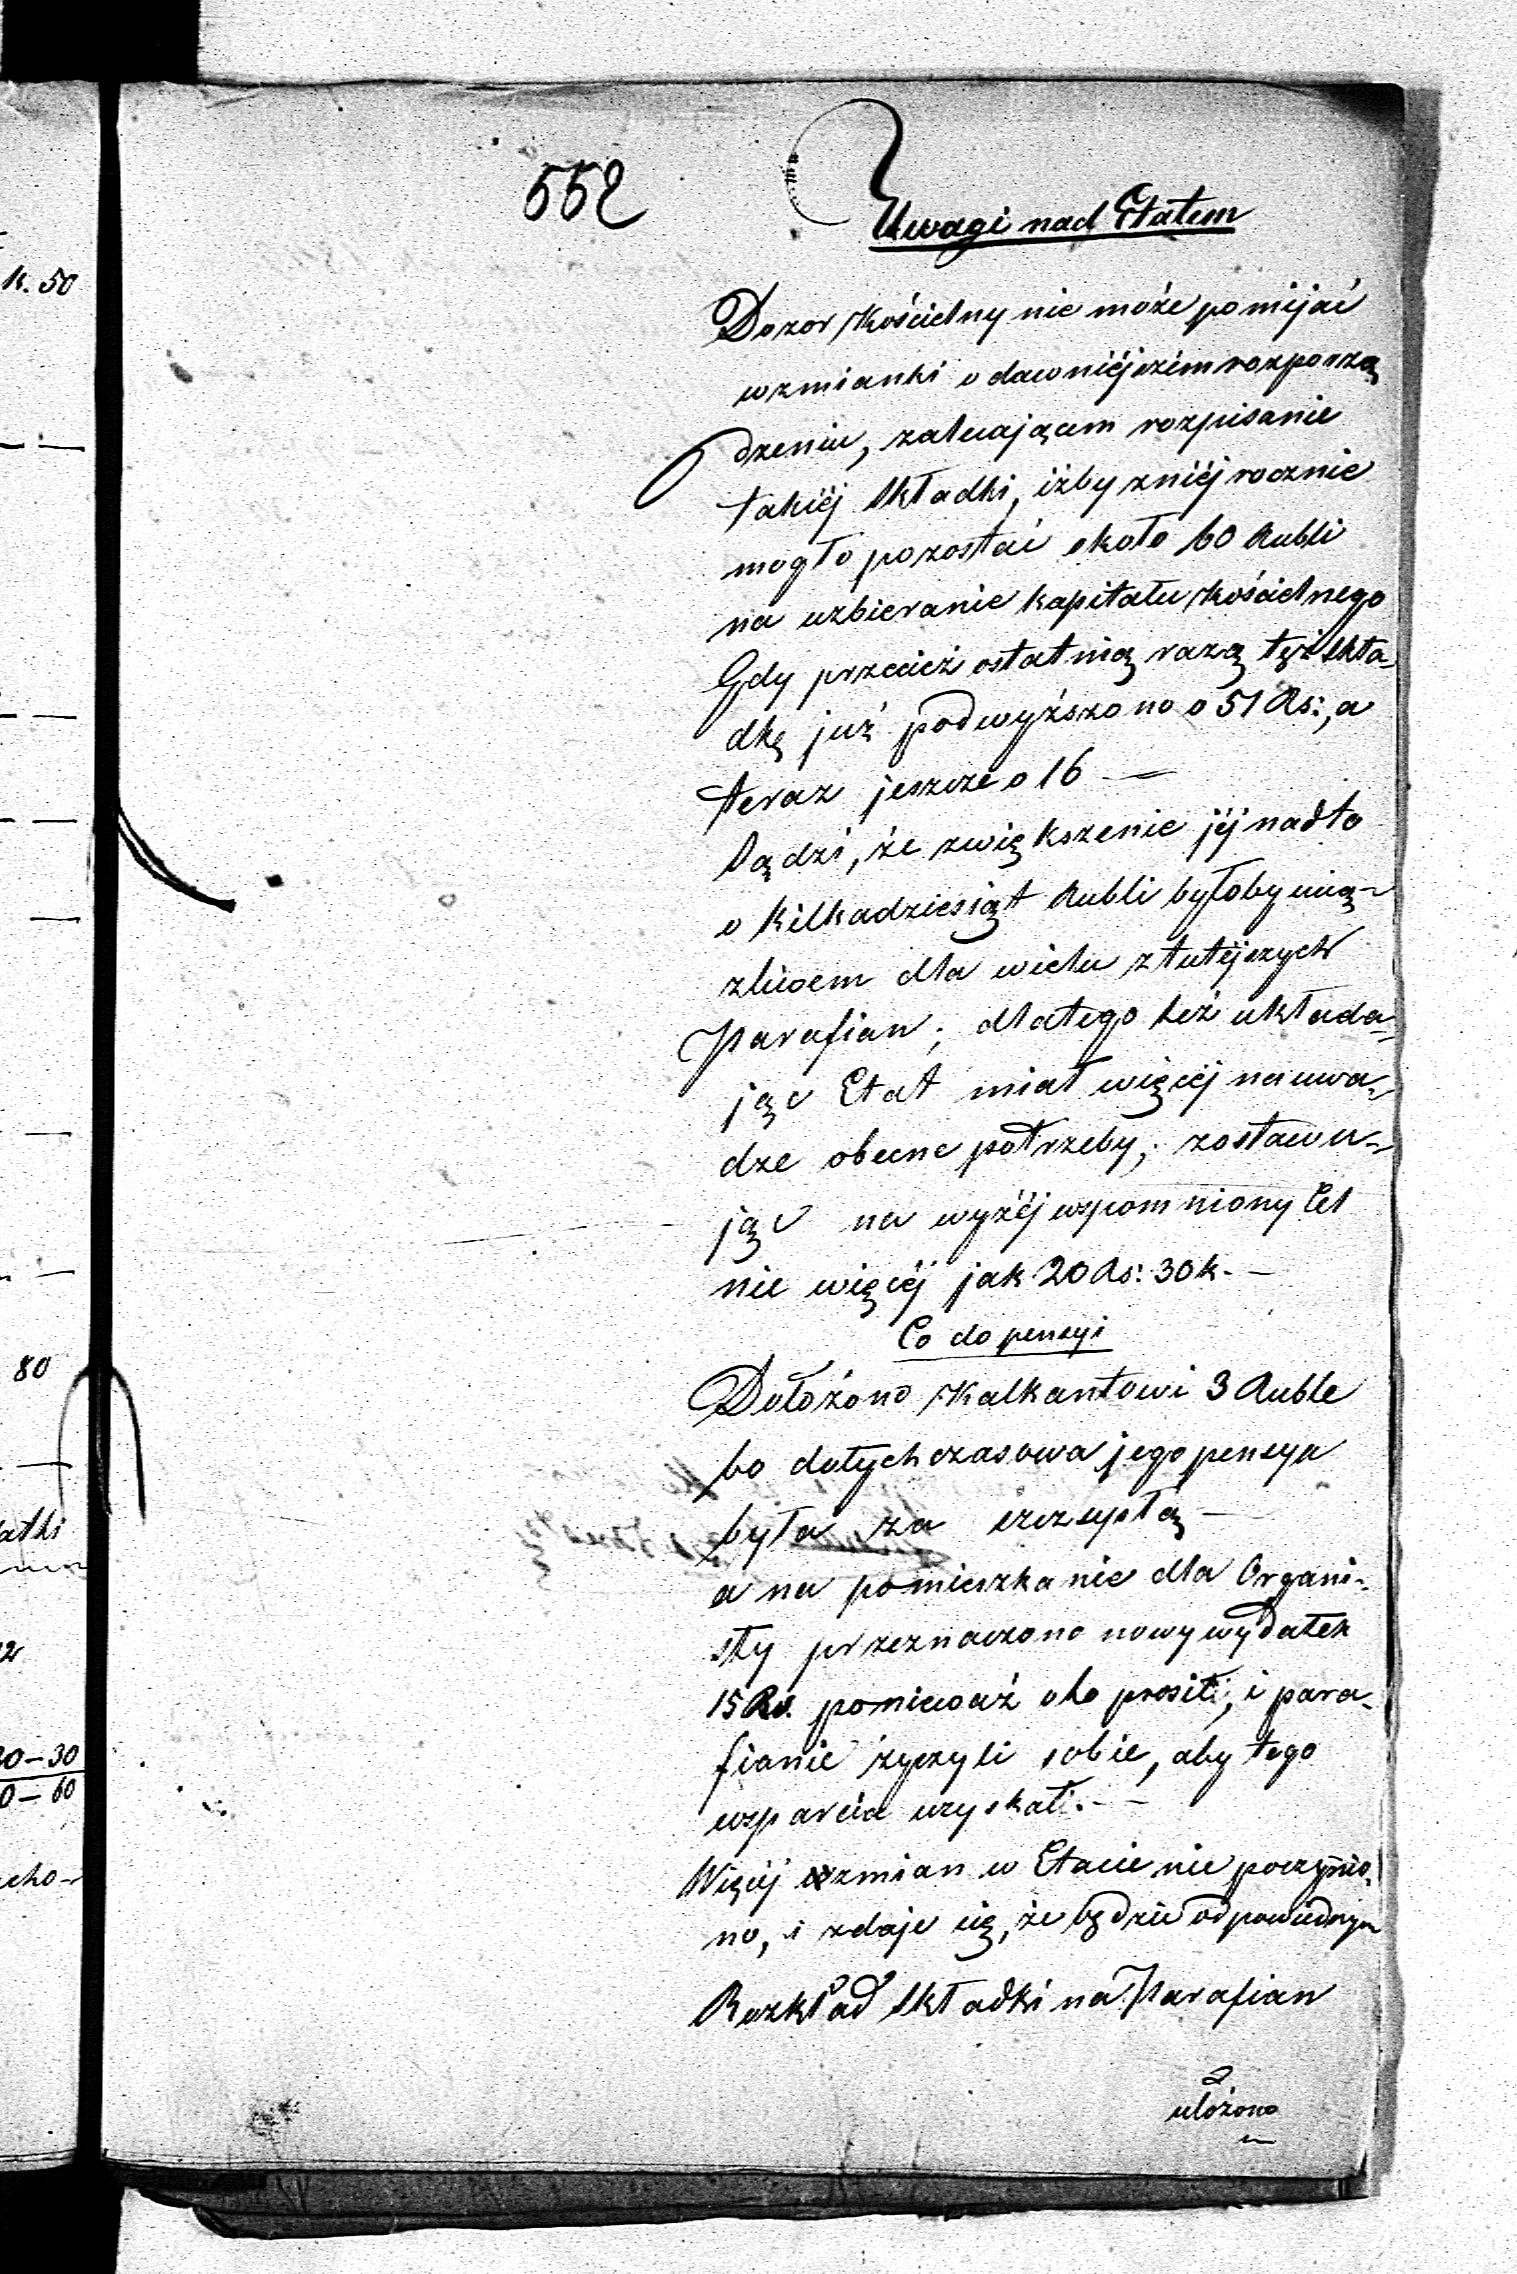 k. 50
80
30-30
0-60
552
Uwagi nad Etatem
Dozor Kościelny nie może pomijać
wzmianki o dawniéjszém rozporzą
dzeniu, zalecającem rozpisanie
takiéj Składki, iżby zniéj rocznie
mogło pozostać około 60 Rubli
na uzbieranie kapitału Kościelnego
Gdy przecież ostatnią razą tęż Skła-
dkę już podwyższono o 51 Rs:, a
teraz jeszcze o 16 —
Sądzi, że zwiększenie jéj nadto
o kilkadziesiąt Rubli byłoby ucią-
żliwem dla wielu z tutéjszych
Parafian; dlatego też układa-
jąc Etat miał więcéj na uwa-
dze obecne potrzeby, zostawu-
jąc na wyżéj wspomniony Cel
nie więcéj jak 20 Rs: 30 k. —
Co do pensyi
Dołożono Kalkantowi 3 Ruble
bo dotychczasowa jego pensya
była za szczupłą —
a na pomieszkanie dla Organi-
sty przeznaczono nowy wydatek
15 Rs. ponieważ oto prosił, i para-
fianie życzyli sobie, aby tego
wsparcia uzyskał. —
Więcéj zmian w Etacie nie poczynio-
no, i zdaje się, że będzie odpowiednym
Rozkład Składki na Parafian
ułożono